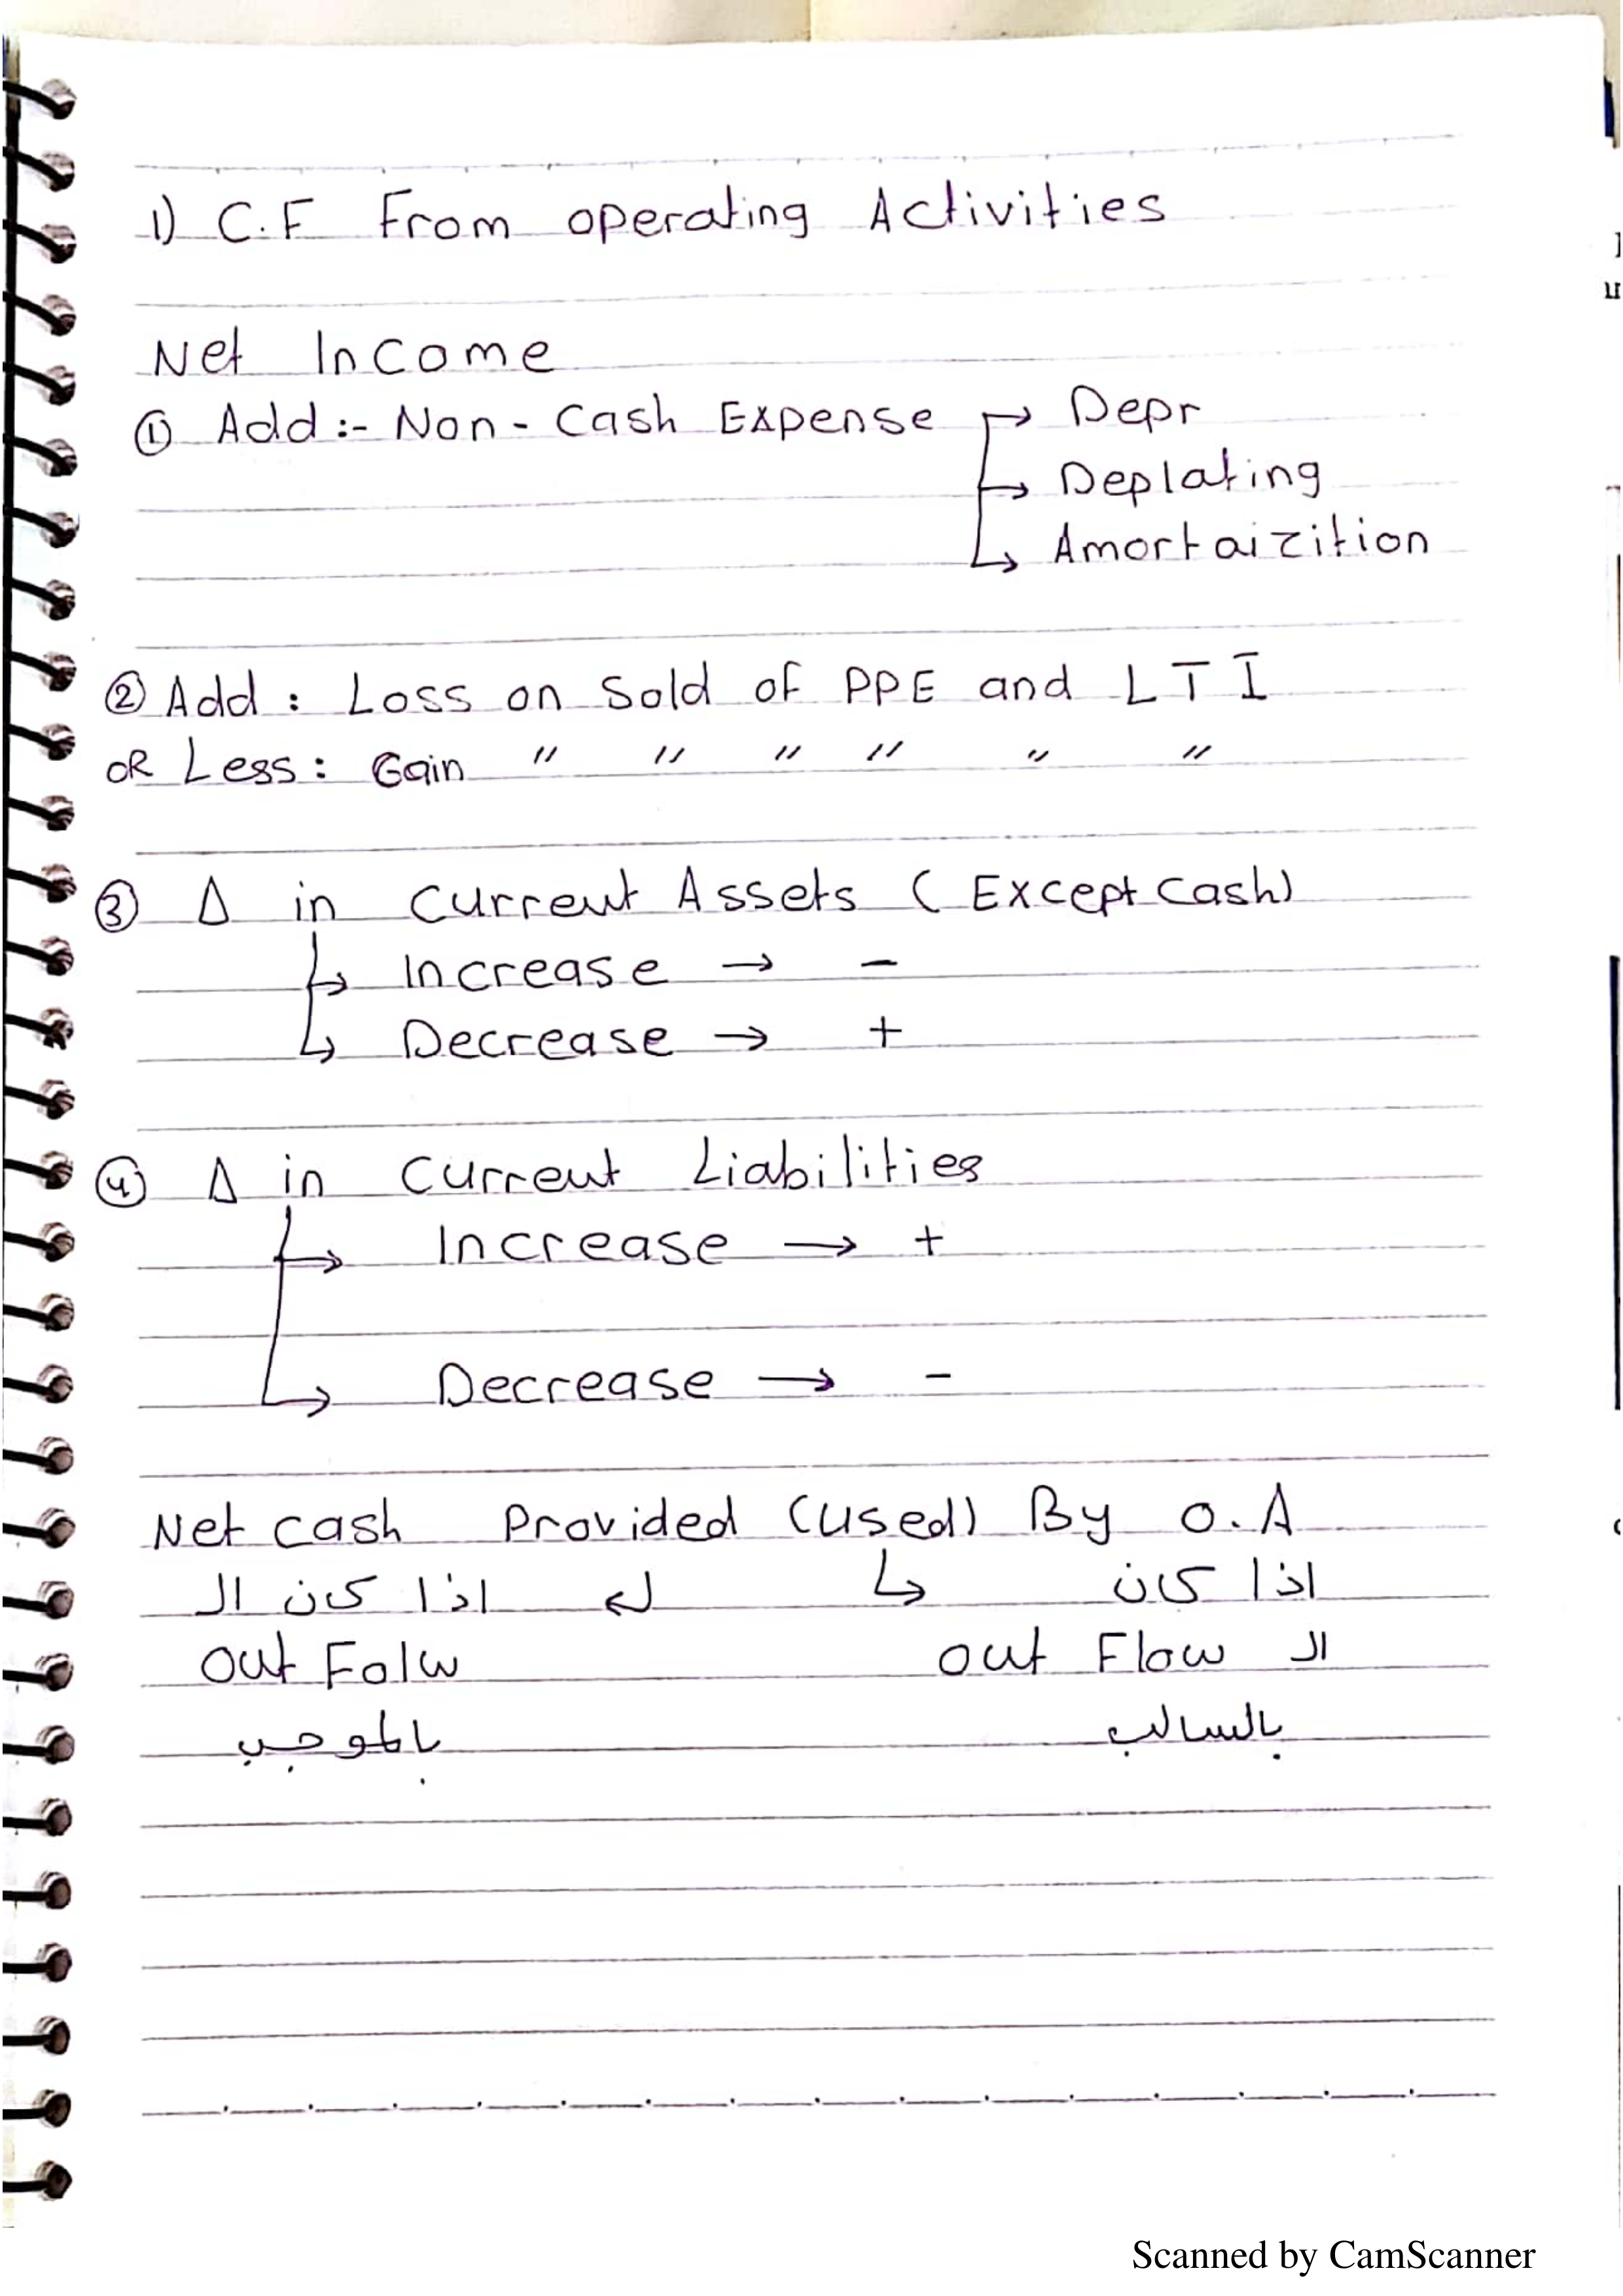 1) C.F From operating Activities
Net Income
① Add :- Non - Cash Expense → Depr
→ Deplating
→ Amortaizition
② Add : Loss on Sold of PPE and LTI
OR Less : Gain " " " " " "
③ Δ in Current Assets ( Except Cash)
→ Increase → -
→ Decrease → +
④ Δ in Current Liabilities
→ Increase → +
→ Decrease → -
Net cash Provided (used) By O.A
اذا كان ال ↲ ↳ اذا كان
out Folw out Flow ال
بالموجب بالسالب
Scanned by CamScanner